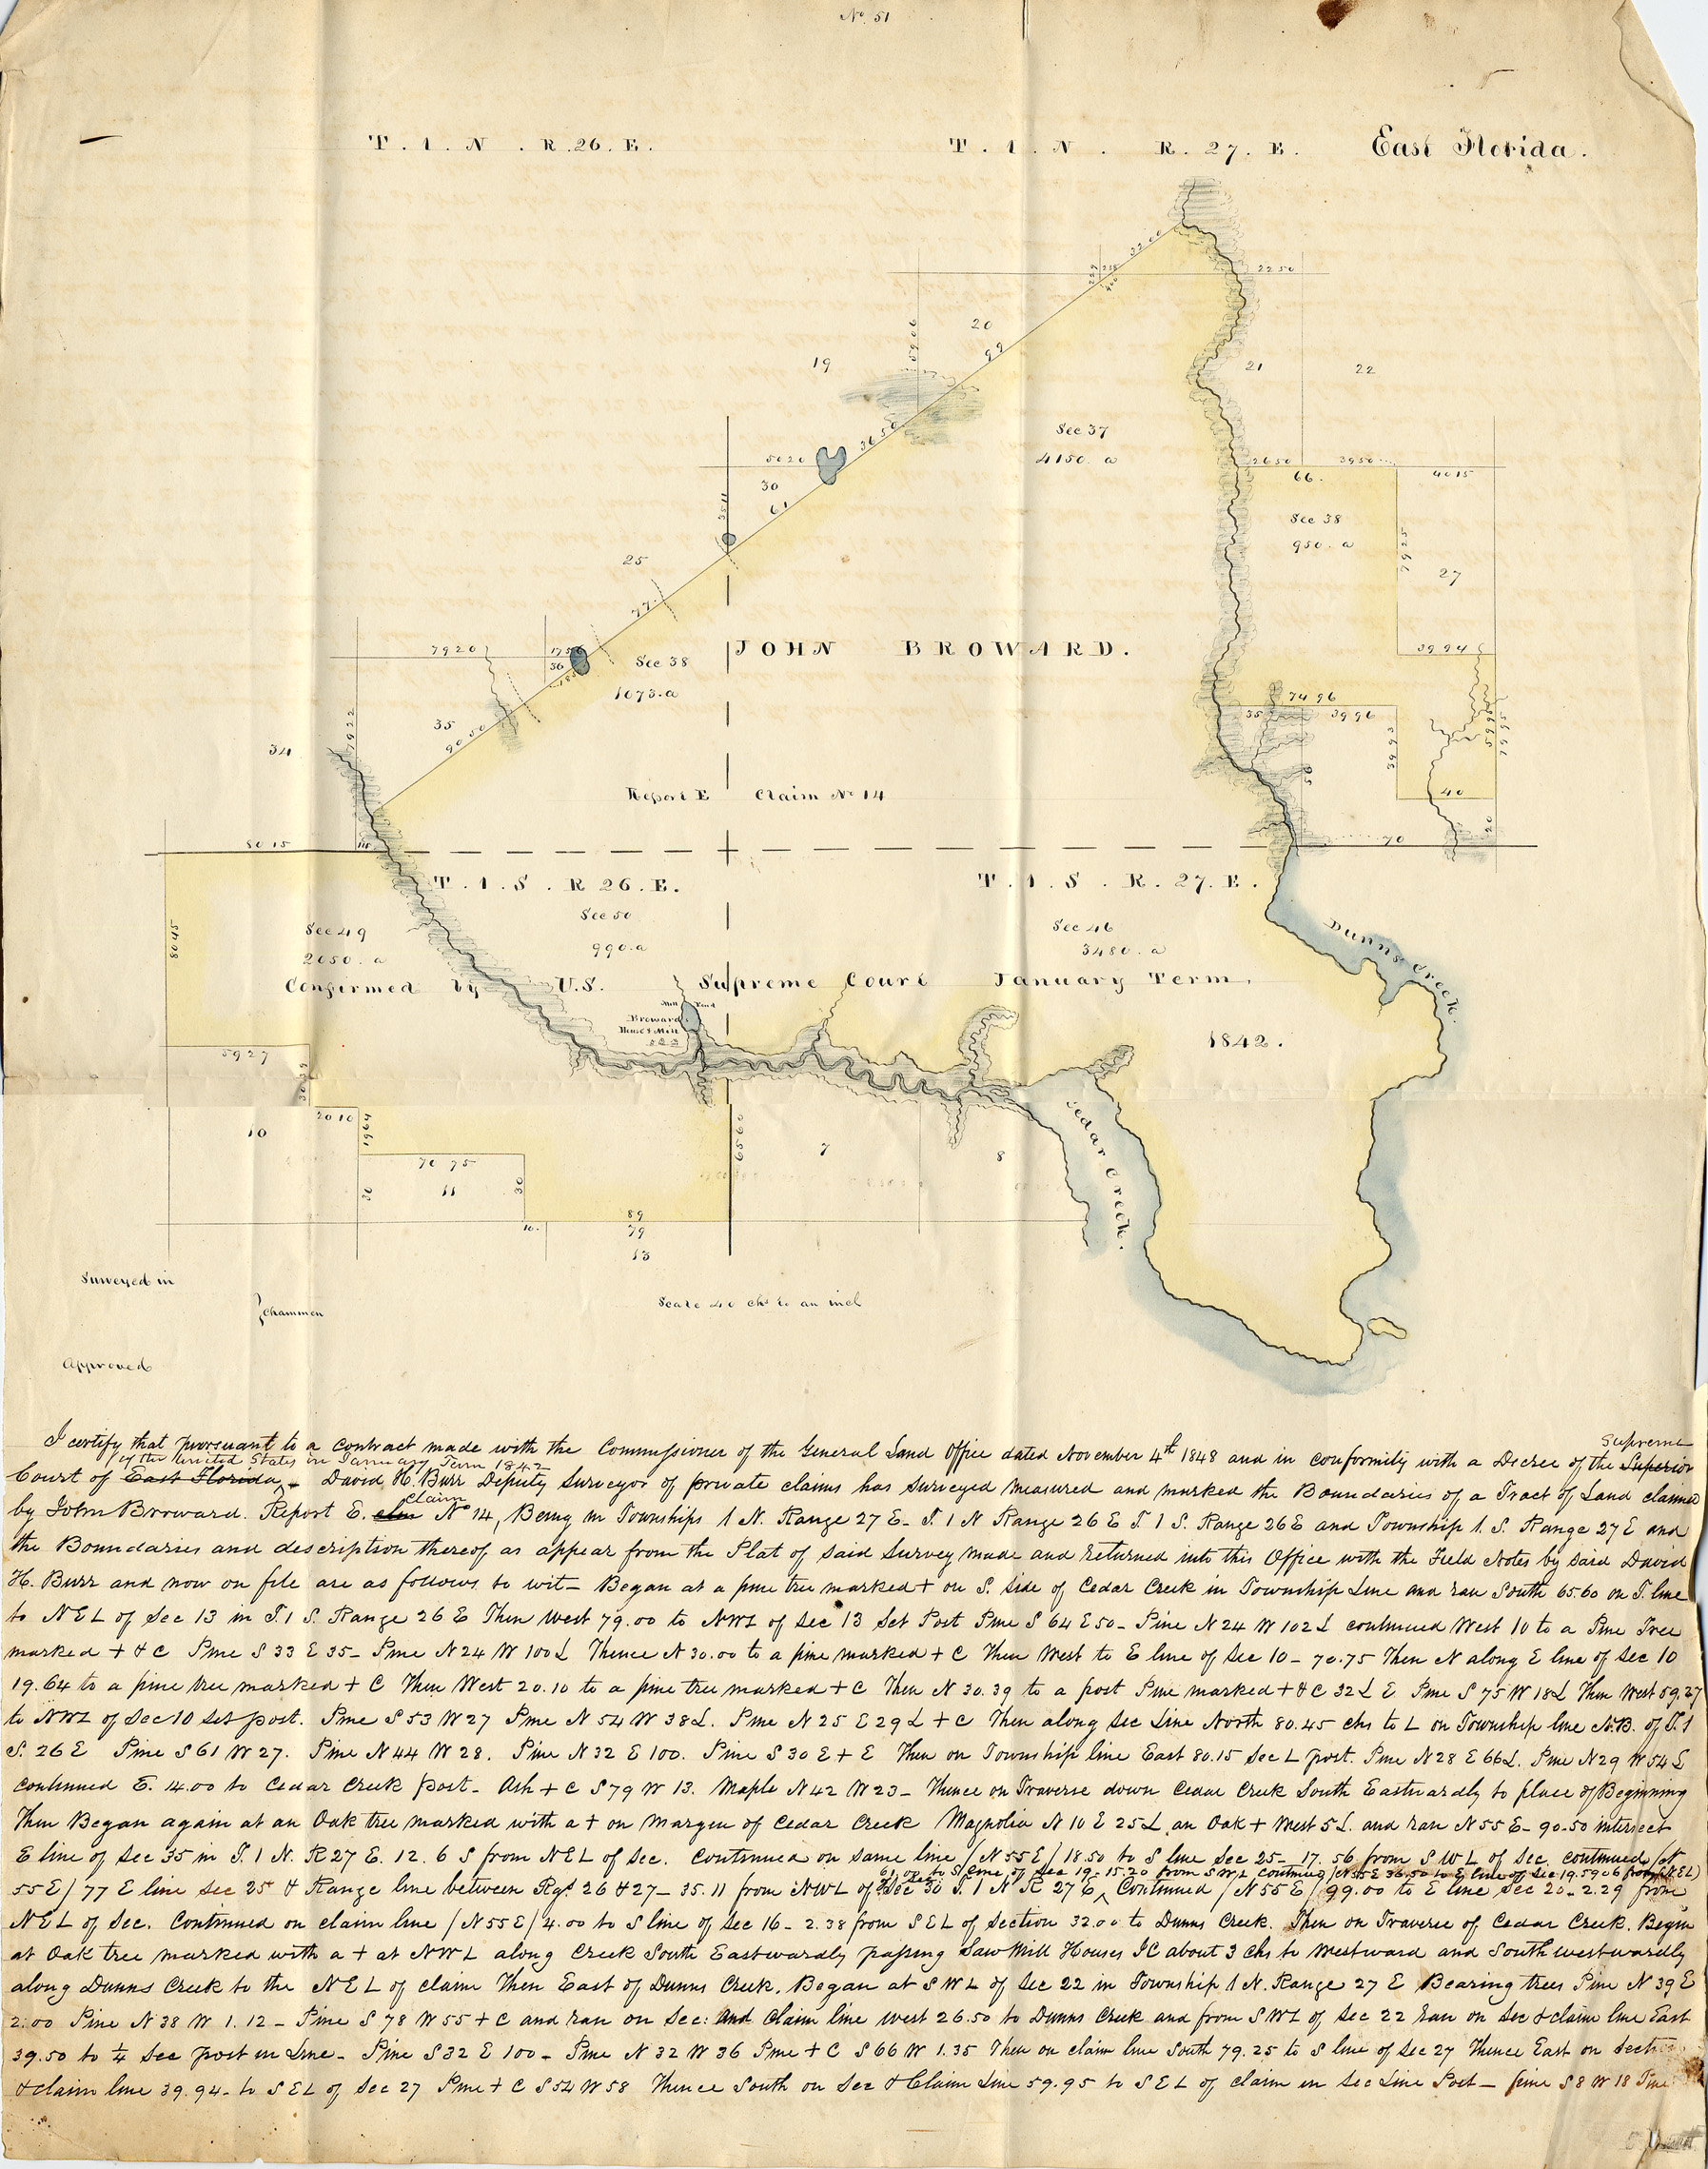 No. 51
T. 1. N. R. 26. E.
T. 1. N. R. 27. E.
East Florida.
32 00
22 50
20
99
59 06
19
21
22
36 50
Sec 37
4150. a
50 20
30
61
35 11
26 50
39 50
40 15
66.
Sec 38
950. a
79 25
27
25
77
JOHN BROWARD.
79 20
17 56
36
18 50
Sec 38
1073. a
39 94
74 96
35
39 96
35
90 50
34
79 22
39 93
59 95
79 95
56
40
20
70
Report E Claim No 14
80 15
T. 1. S. R 26. E.
T. 1. S. R. 27. E.
Sec 49
2050. a
Sec 50
990. a
Sec 46
3480. a
80 45
Dunns Creek.
Confirmed by U.S. Supreme Court January Term,
1842.
Mill Pond
Broward
House & Mill
59 27
30 39
20 10
19 64
10
70 75
11
30
30
65 60
7
8
Cedar Creek.
89
10.
79
13
Surveyed in
Chammen
Scale 40 chs to an inch
Approved
I certify that pursuant to a contract made with the Commissioner of the General Land Office dated November 4th 1848 and in conformity with a Decree of the Superior Supreme
Court of East Florida of the United States in January Term 1842 David H. Burr Deputy Surveyor of private claims has surveyed measured and marked the Boundaries of a Tract of Land claimed
by John Broward. Report E. clm claim No 14, Being in Townships 1 N. Range 27 E. T. 1 N Range 26 E T. 1 S. Range 26 E and Township 1. S. Range 27 E and
the Boundaries and description thereof as appear from the Plat of said Survey made and returned into this Office with the Field Notes by said David
H. Burr and now on file are as follows to wit - Began at a pine tree marked + on S. side of Cedar Creek in Township Line and ran South 65.60 on T. line
to N E L of Sec 13 in T. 1 S. Range 26 E Then West 79.00 to NWL of Sec 13 Set Post Pine S 64 E 50 - Pine N 24 W 102 L continued West 10 to a Pine Tree
marked + & C Pine S 33 E 35 - Pine N 24 W 100 L Thence N 30.00 to a pine marked + C Then West to E line of Sec 10 - 70.75 Then N along E line of Sec 10
19.64 to a pine tree marked + C Then West 20.10 to a pine tree marked + C Then N 30.39 to a post Pine marked + & C 32 L E Pine S 75 W 18 L Then West 59.27
to NWL of Sec 10 Set post. Pine S 53 W 27 Pine N 54 W 38 L. Pine N 25 E 29 L + C Then along Sec Line North 80.45 chs to L on Township line N.B. of T. 1
S. 26 E Pine S 61 W 27. Pine N 44 W 28. Pine N 32 E 100. Pine S 30 E + E Then on Township line East 80.15 Sec L post. Pine N 28 E 66 L. Pine N 29 W 54 L
continued E. 14.00 to Cedar Creek post - Ash + C S 79 W 13. Maple N 42 W 23 - Thence on Traverse down Cedar Creek South Eastwardly to place of Beginning
Then Began again at an Oak tree marked with a + on Margen of Cedar Creek Magnolia N 10 E 25 L an Oak + West 5 L. and ran N 55 E - 90.50 intersect
E line of Sec 35 in T. 1 N. R 27 E. 12. 6 S from N E L of Sec. Continued on same line (N 55 E) 18.50 to S line Sec 25 - 17. 56 from S W L of Sec. continued (N
61.00 to S line of Sec 19 - 15.20 from S W L continued (N 55 E 36.50 to E line of Sec 19. 59 06 from (N E L)
55 E) 77 E line Sec 25 & Range line between Rgs 26 & 27 - 35.11 from NWL of Sec 30 T. 1 N R 27 E, Continued (N 55 E) 99.00 to E line Sec 20 - 2.29 from
N E L of Sec. Continued on claim line (N 55 E) 4.00 to S line of Sec 16 - 2.38 from S E L of Section 32.00 to Dunns Creek. Then on Traverse of Cedar Creek. Begin
at Oak tree marked with a + at NWL along Creek South Eastwardly passing Saw Mill Houses &C about 3 chs to Westward and South westwardly
along Dunns Creek to the N E L of claim Then East of Dunns Creek. Began at S W L of Sec 22 in Township 1 N. Range 27 E Bearing trees Pine N 39 E
2.00 Pine N 38 W 1.12 - Pine S 78 W 55 + C and ran on Sec: and Claim line west 26.50 to Dunns Creek and from S WL of Sec 22 ran on Sec & claim line East
39.50 to 1/4 Sec post in Line - Pine S 32 E 100 - Pine N 32 W 36 Pine + C S 66 W 1.35 Then on claim line South 79.25 to S line of Sec 27 Thence East on Section
& claim line 39.94 - to S E L of Sec 27 Pine + C S 54 W 58 Thence South on Sec & Claim Line 59.95 to S E L of claim in Sec Line Post - pine S 8 W 18 Pine